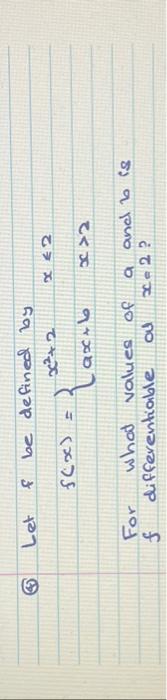 ④ Let f be defined by
f(x) = { x²+2 x ≤ 2
ax+b x>2
For what values of a and b is
f differentiable at x=2?